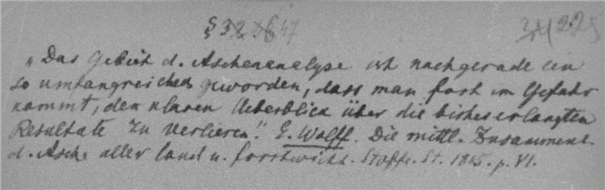 § 38 36 47
„Das Gebiet d. Aschenanalyse ist nachgerade ein
so umfangreiches geworden, dass man fast in Gefahr
kommt, den klaren Ueberblick über die bisher erlangten
Resultate zu verlieren." E. Wolff. Die mittl. Zusammens.
d. Asch. aller land u. forstwirth. Stoffe. St. 1865. p. VI.